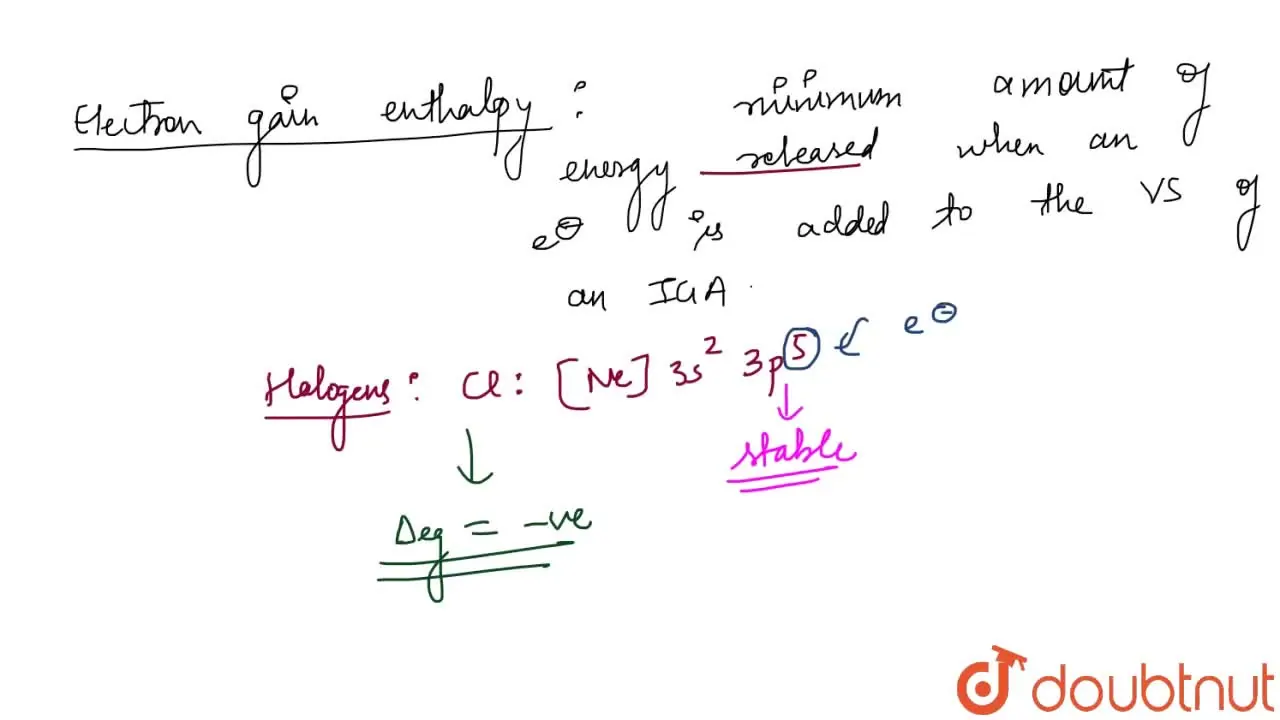 Electron gain enthalpy : minimum amount of
energy released when an
e⊖ is added to the VS of
an IGA.
Halogens : Cl : [Ne] 3s² 3p⁵ ← e⊖
stable
Δeg = -ve
doubtnut